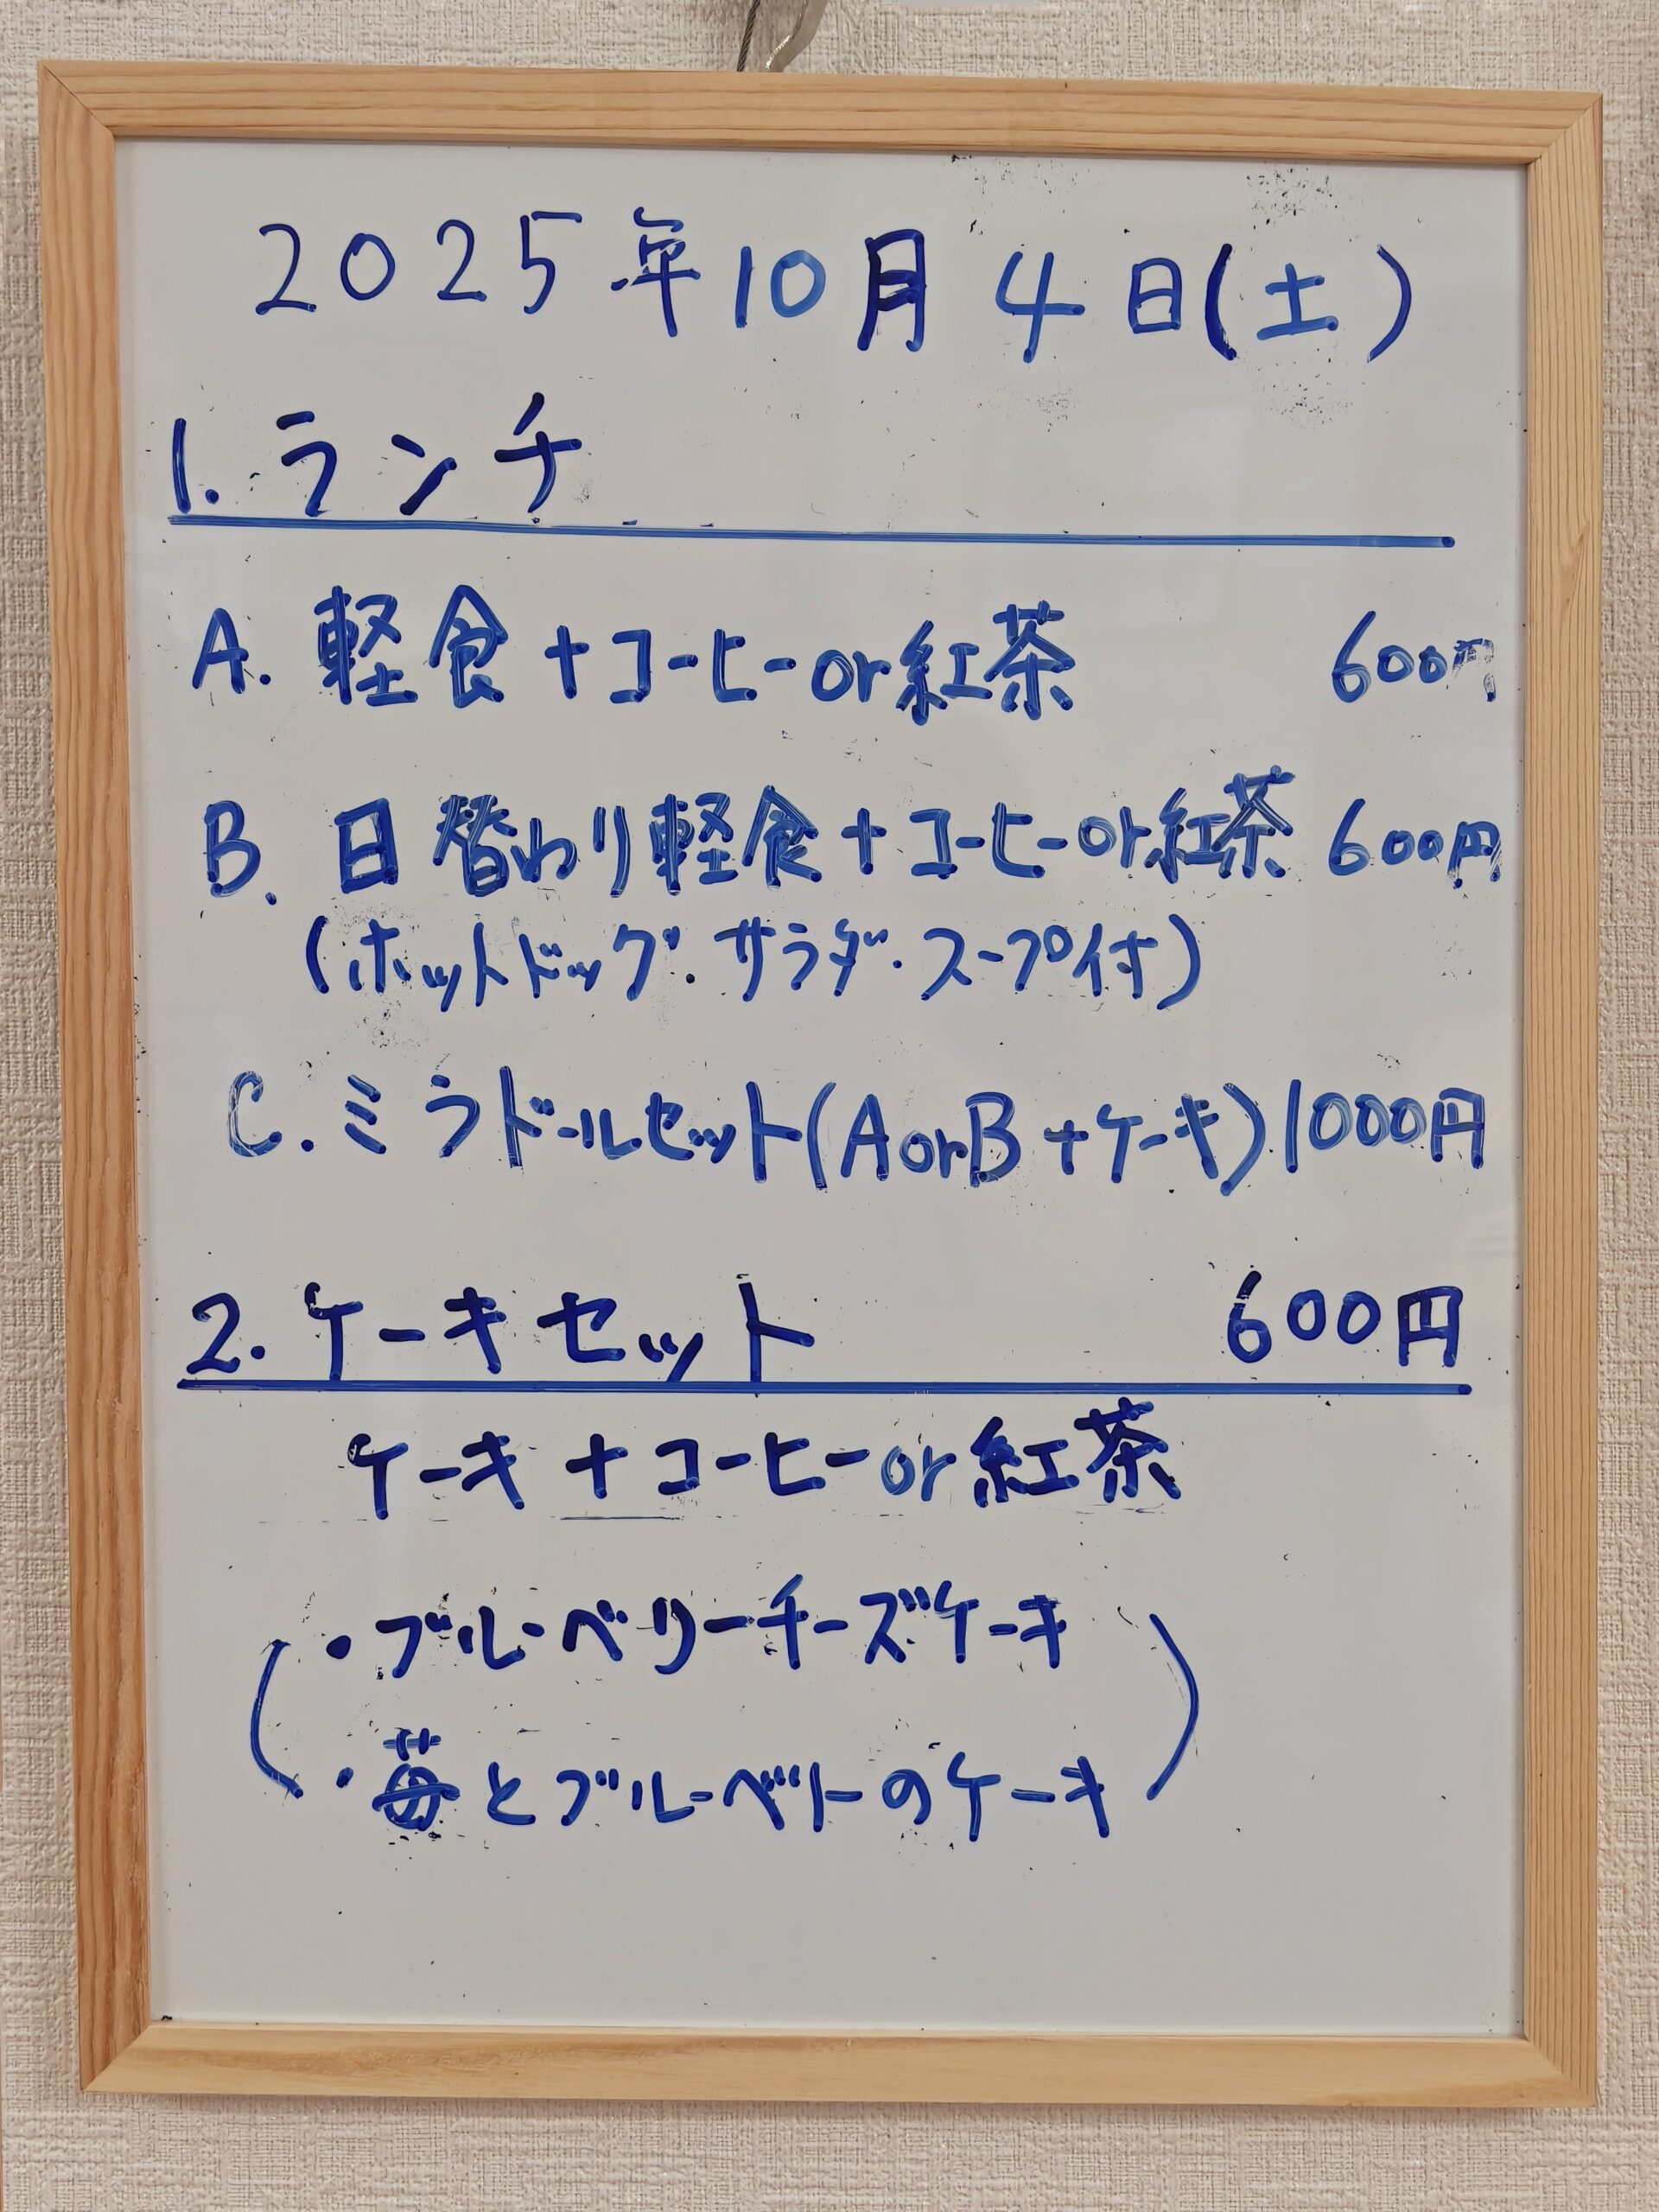 2025年10月4日(土)
1. ランチ
A. 軽食+コーヒーor紅茶 600円
B. 日替わり軽食+コーヒーor紅茶 600円
(ホットドッグ・サラダ・スープ付)
C. ミラドールセット(AorB+ケーキ) 1000円
2. ケーキセット 600円
ケーキ+コーヒーor紅茶
・ブルーベリーチーズケーキ
・苺とブルーベトのケーキ